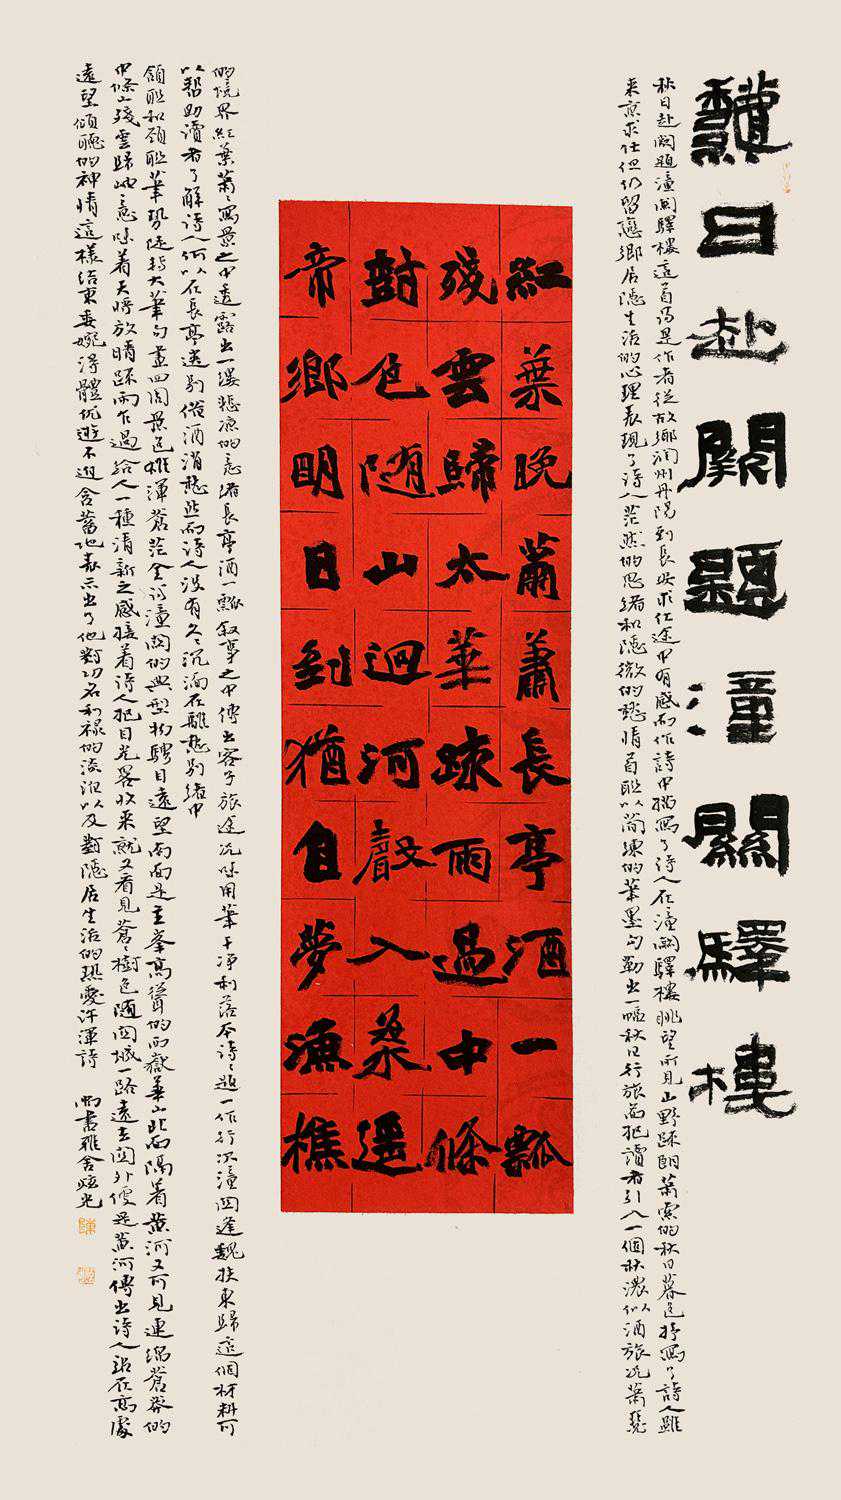 龝日赴闕題潼關驛樓
秋日赴闕題潼關驛樓這首詩是作者從故鄉潤州丹陽到長安求仕途中有感而作詩中描寫了詩人在潼關驛樓眺望所見山野疎朗蕭索的秋日暮色抒寫了詩人雖
來京求仕但仍留戀鄉居隱生活的心理表現了詩人茫然的思緒和隱微的愁情首联以簡练的筆墨勾勒出一幅秋日行旅圖把讀者引入一個秋濃似酒旅况蕭瑟
紅葉晚蕭蕭長亭酒一瓢
殘雲歸太華疎雨過中條
尌色随山迥河聲入海遥
帝鄉明日到猶自夢漁樵
的境界紅葉蕭蕭寫景之中透露出一縷悲凉的意緒長亭酒一瓢叙事之中傳出客子旅途况味用筆干净利落本詩詩題一作行次潼関逢魏扶東歸這個材料可
以帮助讀者了解詩人何以在長亭送别借酒消愁然而詩人没有久久沉湎在離愁别緒中
頷联和頸联筆势陡转大筆勾畫四周景色雄渾蒼茫全詩潼関的典型物騁目遠望南面是主峯高聳的西嶽華山北面隔着黄河又可見連綿蒼莽的
中條山殘雲歸岫意味着天將放晴疎雨乍過給人一種清新之感接着詩人把目光畧收來就又看見蒼蒼樹色随関城一路遠去関外便是黄河傳出詩人站在高處
遠望傾聽的神情這樣结束委婉得體优遊不迫含蓄地表示出了他對功名利禄的淡泊以及對隱居生活的热愛许渾詩 雨書雅舍炫光